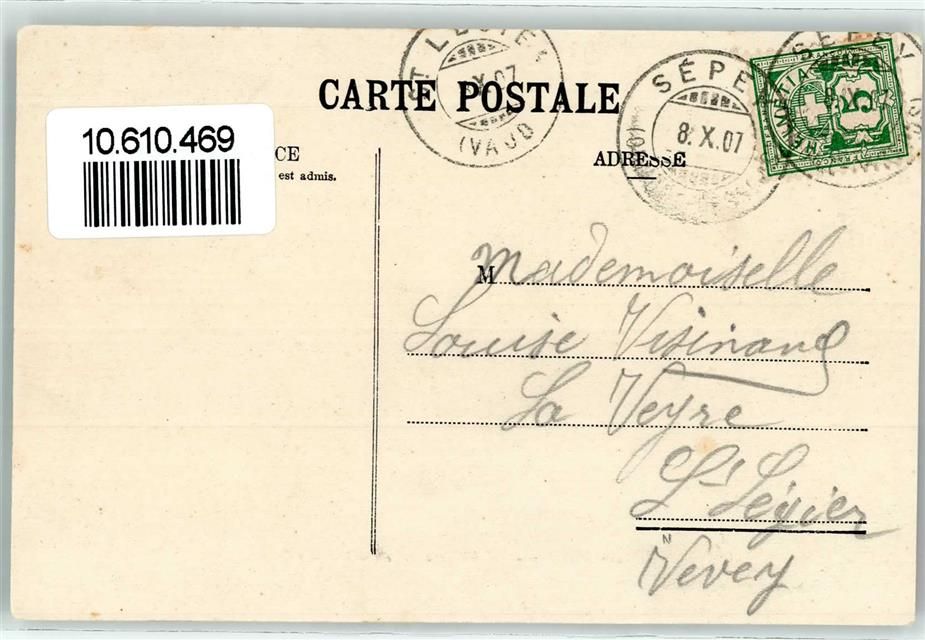 CARTE POSTALE
10.610.469
CE
est admis.
ADRESSE
SÉPEY
8. X. 07
SÉPEY
X. 07
(VAUD
HELVETIA
5
FRANCO
Mademoiselle
Louise Visinand
La Veyre
St Légier
N
Vevey